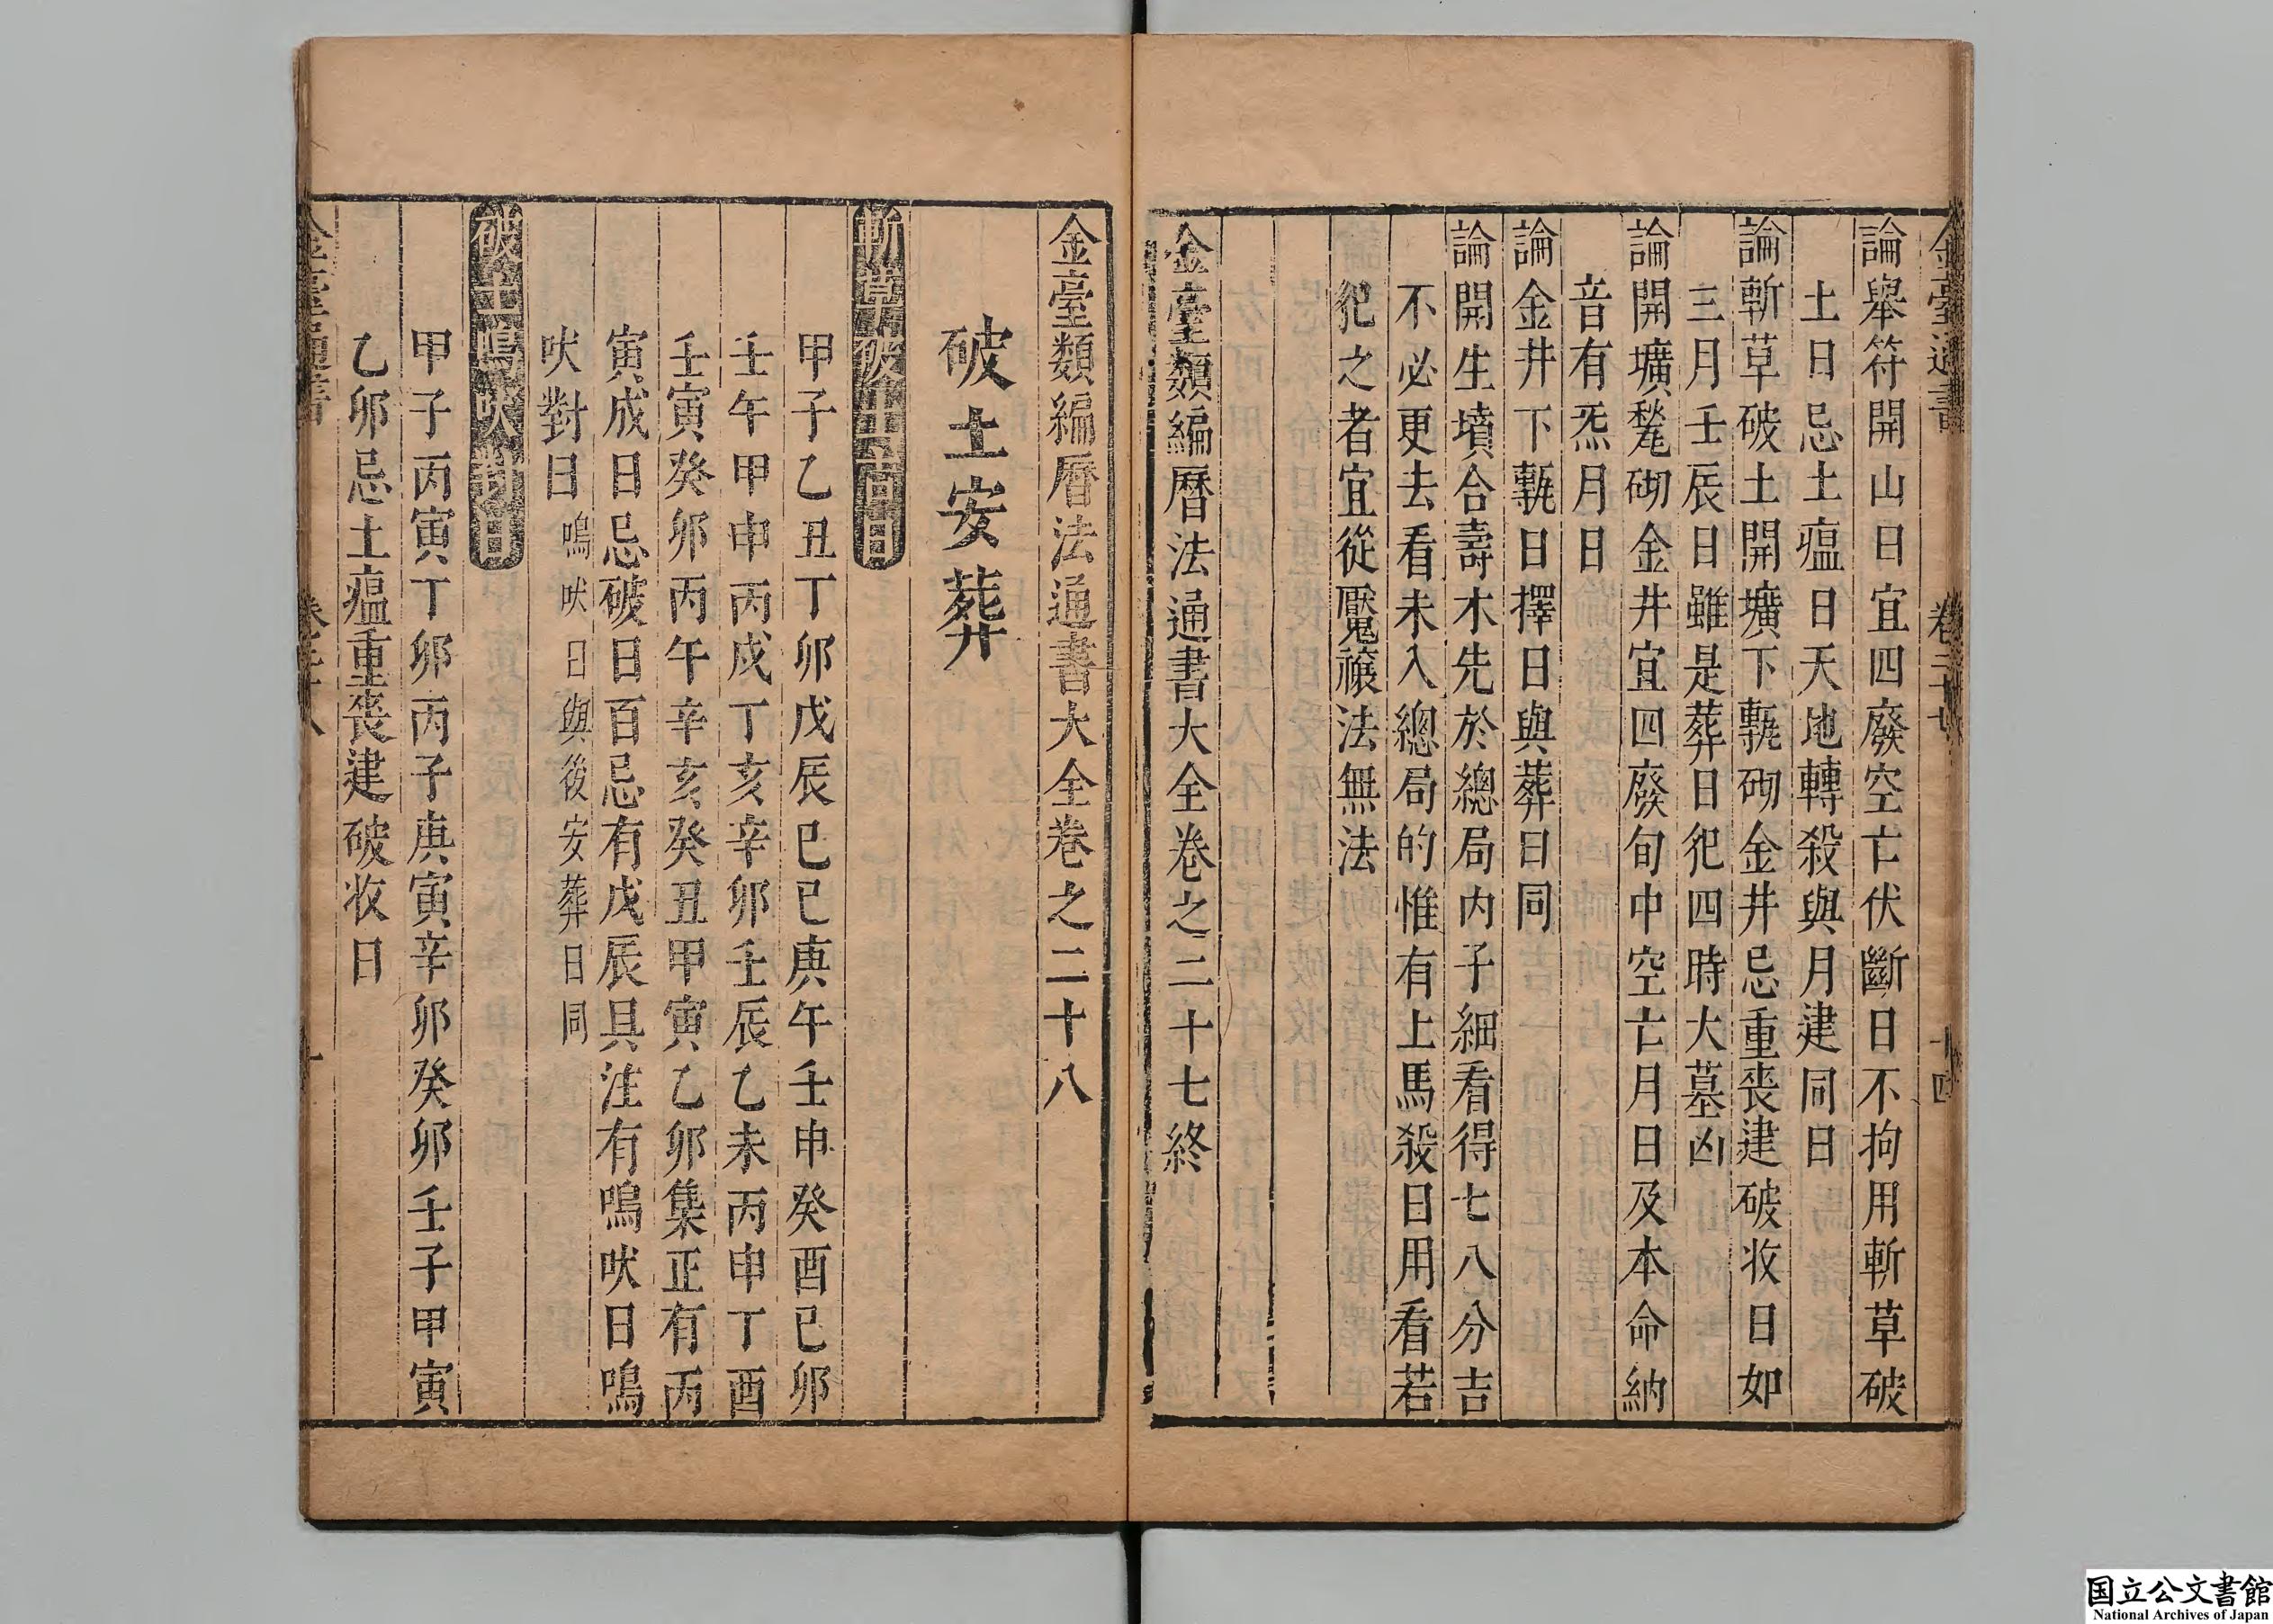 論舉符開山日宜四廢空亡伏斷日不拘用斬草破
土日忌土瘟日天地轉殺與月建同日
論斬草破土開壙下甎砌金井忌重喪建破收日如
三月壬辰日雖是葬日犯四時大墓凶
論開壙甃砌金井宜四廢旬中空亡月日及本命納
音有炁月日
論金井下甎日擇日與葬日同
論開生墳合壽木先於總局内子細看得七八分吉
不必更去看未入總局的惟有上馬殺日用看若
犯之者宜從魘禳法無法
金臺類編曆法通書大全卷之二十七終
金臺類編曆法通書大全卷之二十八
破土安葬
斬草破土吉日
甲子乙丑丁卯戊辰巳巳庚午壬申癸酉巳卯
壬午甲申丙戌丁亥辛卯壬辰乙未丙申丁酉
壬寅癸卯丙午辛亥癸丑甲寅乙卯集正有丙
寅成日忌破日百忌有戊辰具注有嗚吠日嗚
吠對日嗚吠日與後安葬日同
破土嗚吠對日
甲子丙寅丁卯丙子庚寅辛卯癸卯壬子甲寅
乙卯忌土瘟重喪建破收日
国立公文書館
National Archives of Japan